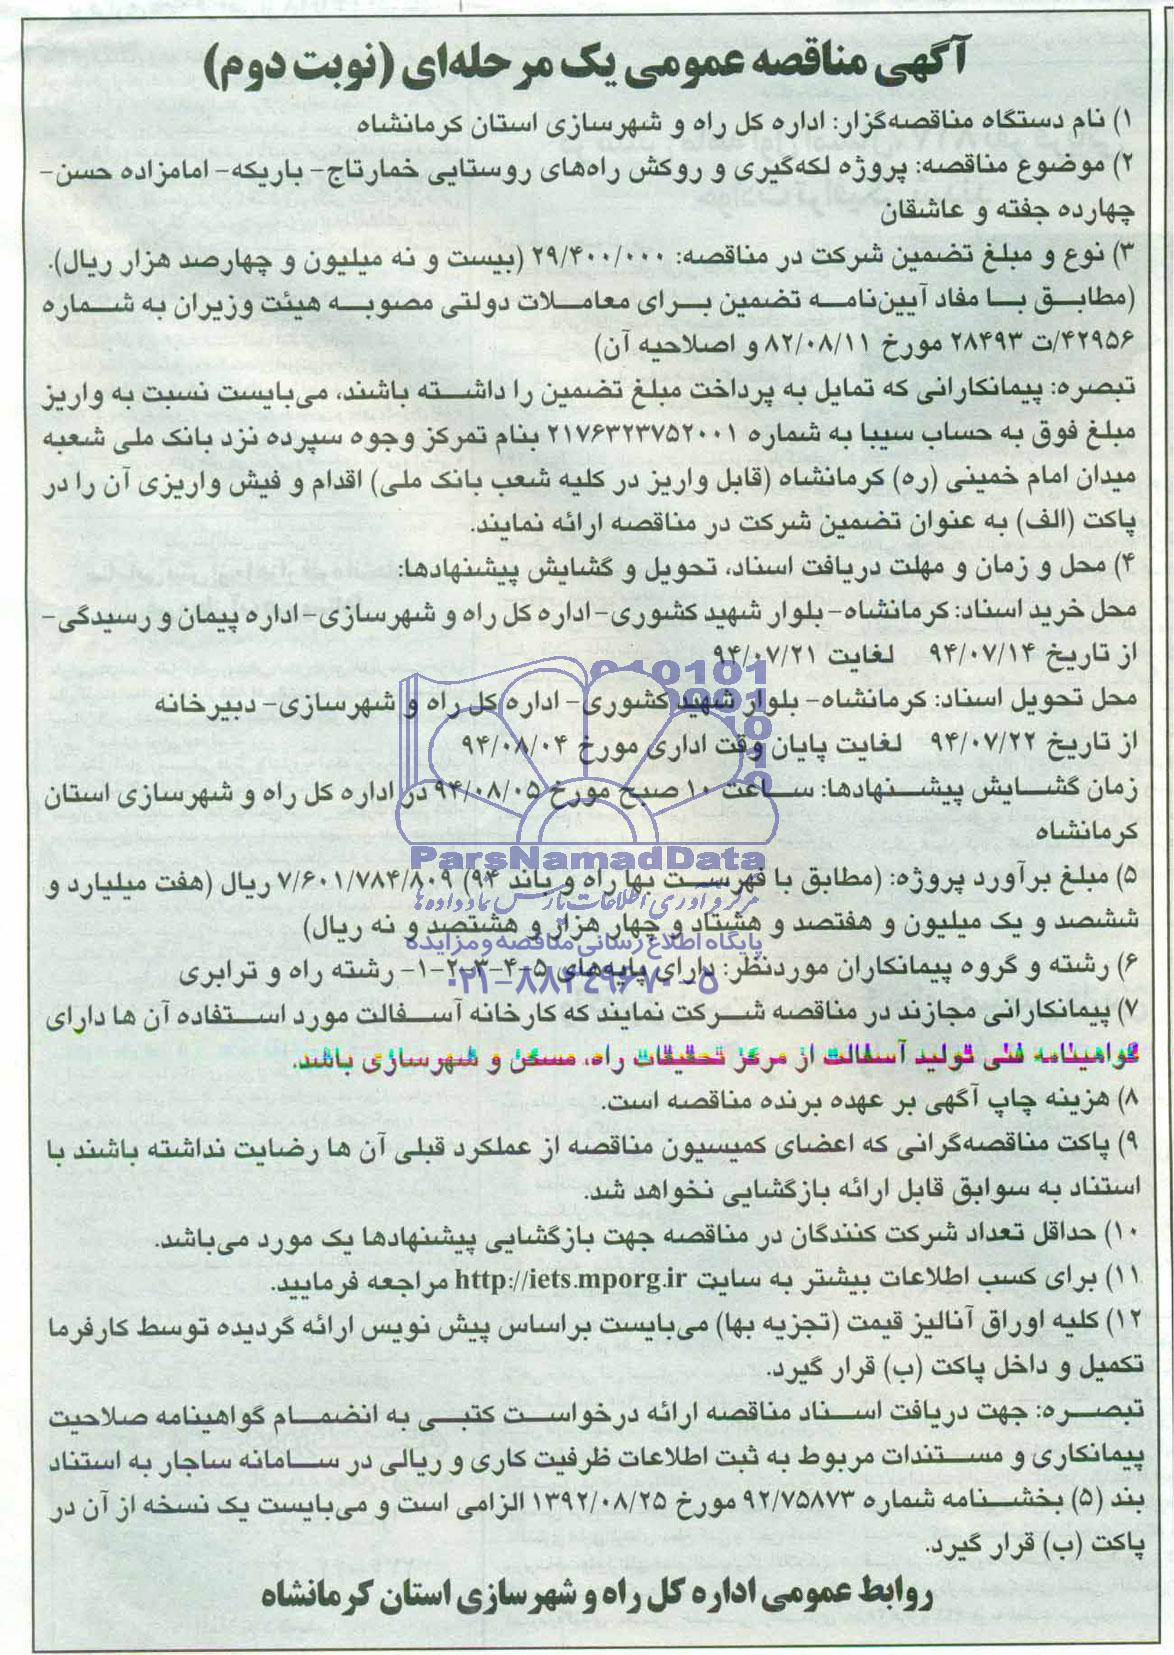 آگهی مناقصه عمومی یک مرحله‌ای (نوبت دوم)
۱) نام دستگاه مناقصه‌گزار: اداره کل راه و شهرسازی استان کرمانشاه
۲) موضوع مناقصه: پروژه لکه‌گیری و روکش راه‌های روستایی خمارتاج- باریکه- امامزاده حسن-
چهارده جفته و عاشقان
۳) نوع و مبلغ تضمین شرکت در مناقصه: ۲۹/۴۰۰/۰۰۰ (بیست و نه میلیون و چهارصد هزار ریال).
(مطابق با مفاد آیین‌نامه تضمین برای معاملات دولتی مصوبه هیئت وزیران به شماره
۴۲۹۵۶/ت ۲۸۴۹۳ مورخ ۸۲/۰۸/۱۱ و اصلاحیه آن)
تبصره: پیمانکارانی که تمایل به پرداخت مبلغ تضمین را داشته باشند، می‌بایست نسبت به واریز
مبلغ فوق به حساب سیبا به شماره ۲۱۷۶۳۲۳۷۵۲۰۰۱ بنام تمرکز وجوه سپرده نزد بانک ملی شعبه
میدان امام خمینی (ره) کرمانشاه (قابل واریز در کلیه شعب بانک ملی) اقدام و فیش واریزی آن را در
پاکت (الف) به عنوان تضمین شرکت در مناقصه ارائه نمایند.
۴) محل و زمان و مهلت دریافت اسناد، تحویل و گشایش پیشنهادها:
محل خرید اسناد: کرمانشاه- بلوار شهید کشوری- اداره کل راه و شهرسازی- اداره پیمان و رسیدگی-
از تاریخ ۹۴/۰۷/۱۴ لغایت ۹۴/۰۷/۲۱
محل تحویل اسناد: کرمانشاه- بلوار شهید کشوری- اداره کل راه و شهرسازی- دبیرخانه
از تاریخ ۹۴/۰۷/۲۲ لغایت پایان وقت اداری مورخ ۹۴/۰۸/۰۴
زمان گشایش پیشنهادها: ساعت ۱۰ صبح مورخ ۹۴/۰۸/۰۵ در اداره کل راه و شهرسازی استان
کرمانشاه
ParsNamadData
۵) مبلغ برآورد پروژه: (مطابق با فهرست بها راه و باند ۹۴) ۷/۶۰۱/۷۸۴/۸۰۹ ریال (هفت میلیارد و
مرکز فرآوری اطلاعات پارس نماد داده‌ها
ششصد و یک میلیون و هفتصد و هشتاد و چهار هزار و هشتصد و نه ریال)
پایگاه اطلاع رسانی مناقصه و مزایده
۶) رشته و گروه پیمانکاران موردنظر: دارای پایه‌های ۵-۴-۳-۲-۱- رشته راه و ترابری
۰۲۱-۸۸۳۴۹۶۷۰-۵
۷) پیمانکارانی مجازند در مناقصه شرکت نمایند که کارخانه آسفالت مورد استفاده آن ها دارای
گواهینامه فنی تولید آسفالت از مرکز تحقیقات راه، مسکن و شهرسازی باشد.
۸) هزینه چاپ آگهی بر عهده برنده مناقصه است.
۹) پاکت مناقصه‌گرانی که اعضای کمیسیون مناقصه از عملکرد قبلی آن ها رضایت نداشته باشند با
استناد به سوابق قابل ارائه بازگشایی نخواهد شد.
۱۰) حداقل تعداد شرکت کنندگان در مناقصه جهت بازگشایی پیشنهادها یک مورد می‌باشد.
۱۱) برای کسب اطلاعات بیشتر به سایت http://iets.mporg.ir مراجعه فرمایید.
۱۲) کلیه اوراق آنالیز قیمت (تجزیه بها) می‌بایست براساس پیش نویس ارائه گردیده توسط کارفرما
تکمیل و داخل پاکت (ب) قرار گیرد.
تبصره: جهت دریافت اسناد مناقصه ارائه درخواست کتبی به انضمام گواهینامه صلاحیت
پیمانکاری و مستندات مربوط به ثبت اطلاعات ظرفیت کاری و ریالی در سامانه ساجار به استناد
بند (۵) بخشنامه شماره ۹۲/۷۵۸۷۳ مورخ ۱۳۹۲/۰۸/۲۵ الزامی است و می‌بایست یک نسخه از آن در
پاکت (ب) قرار گیرد.
روابط عمومی اداره کل راه و شهرسازی استان کرمانشاه